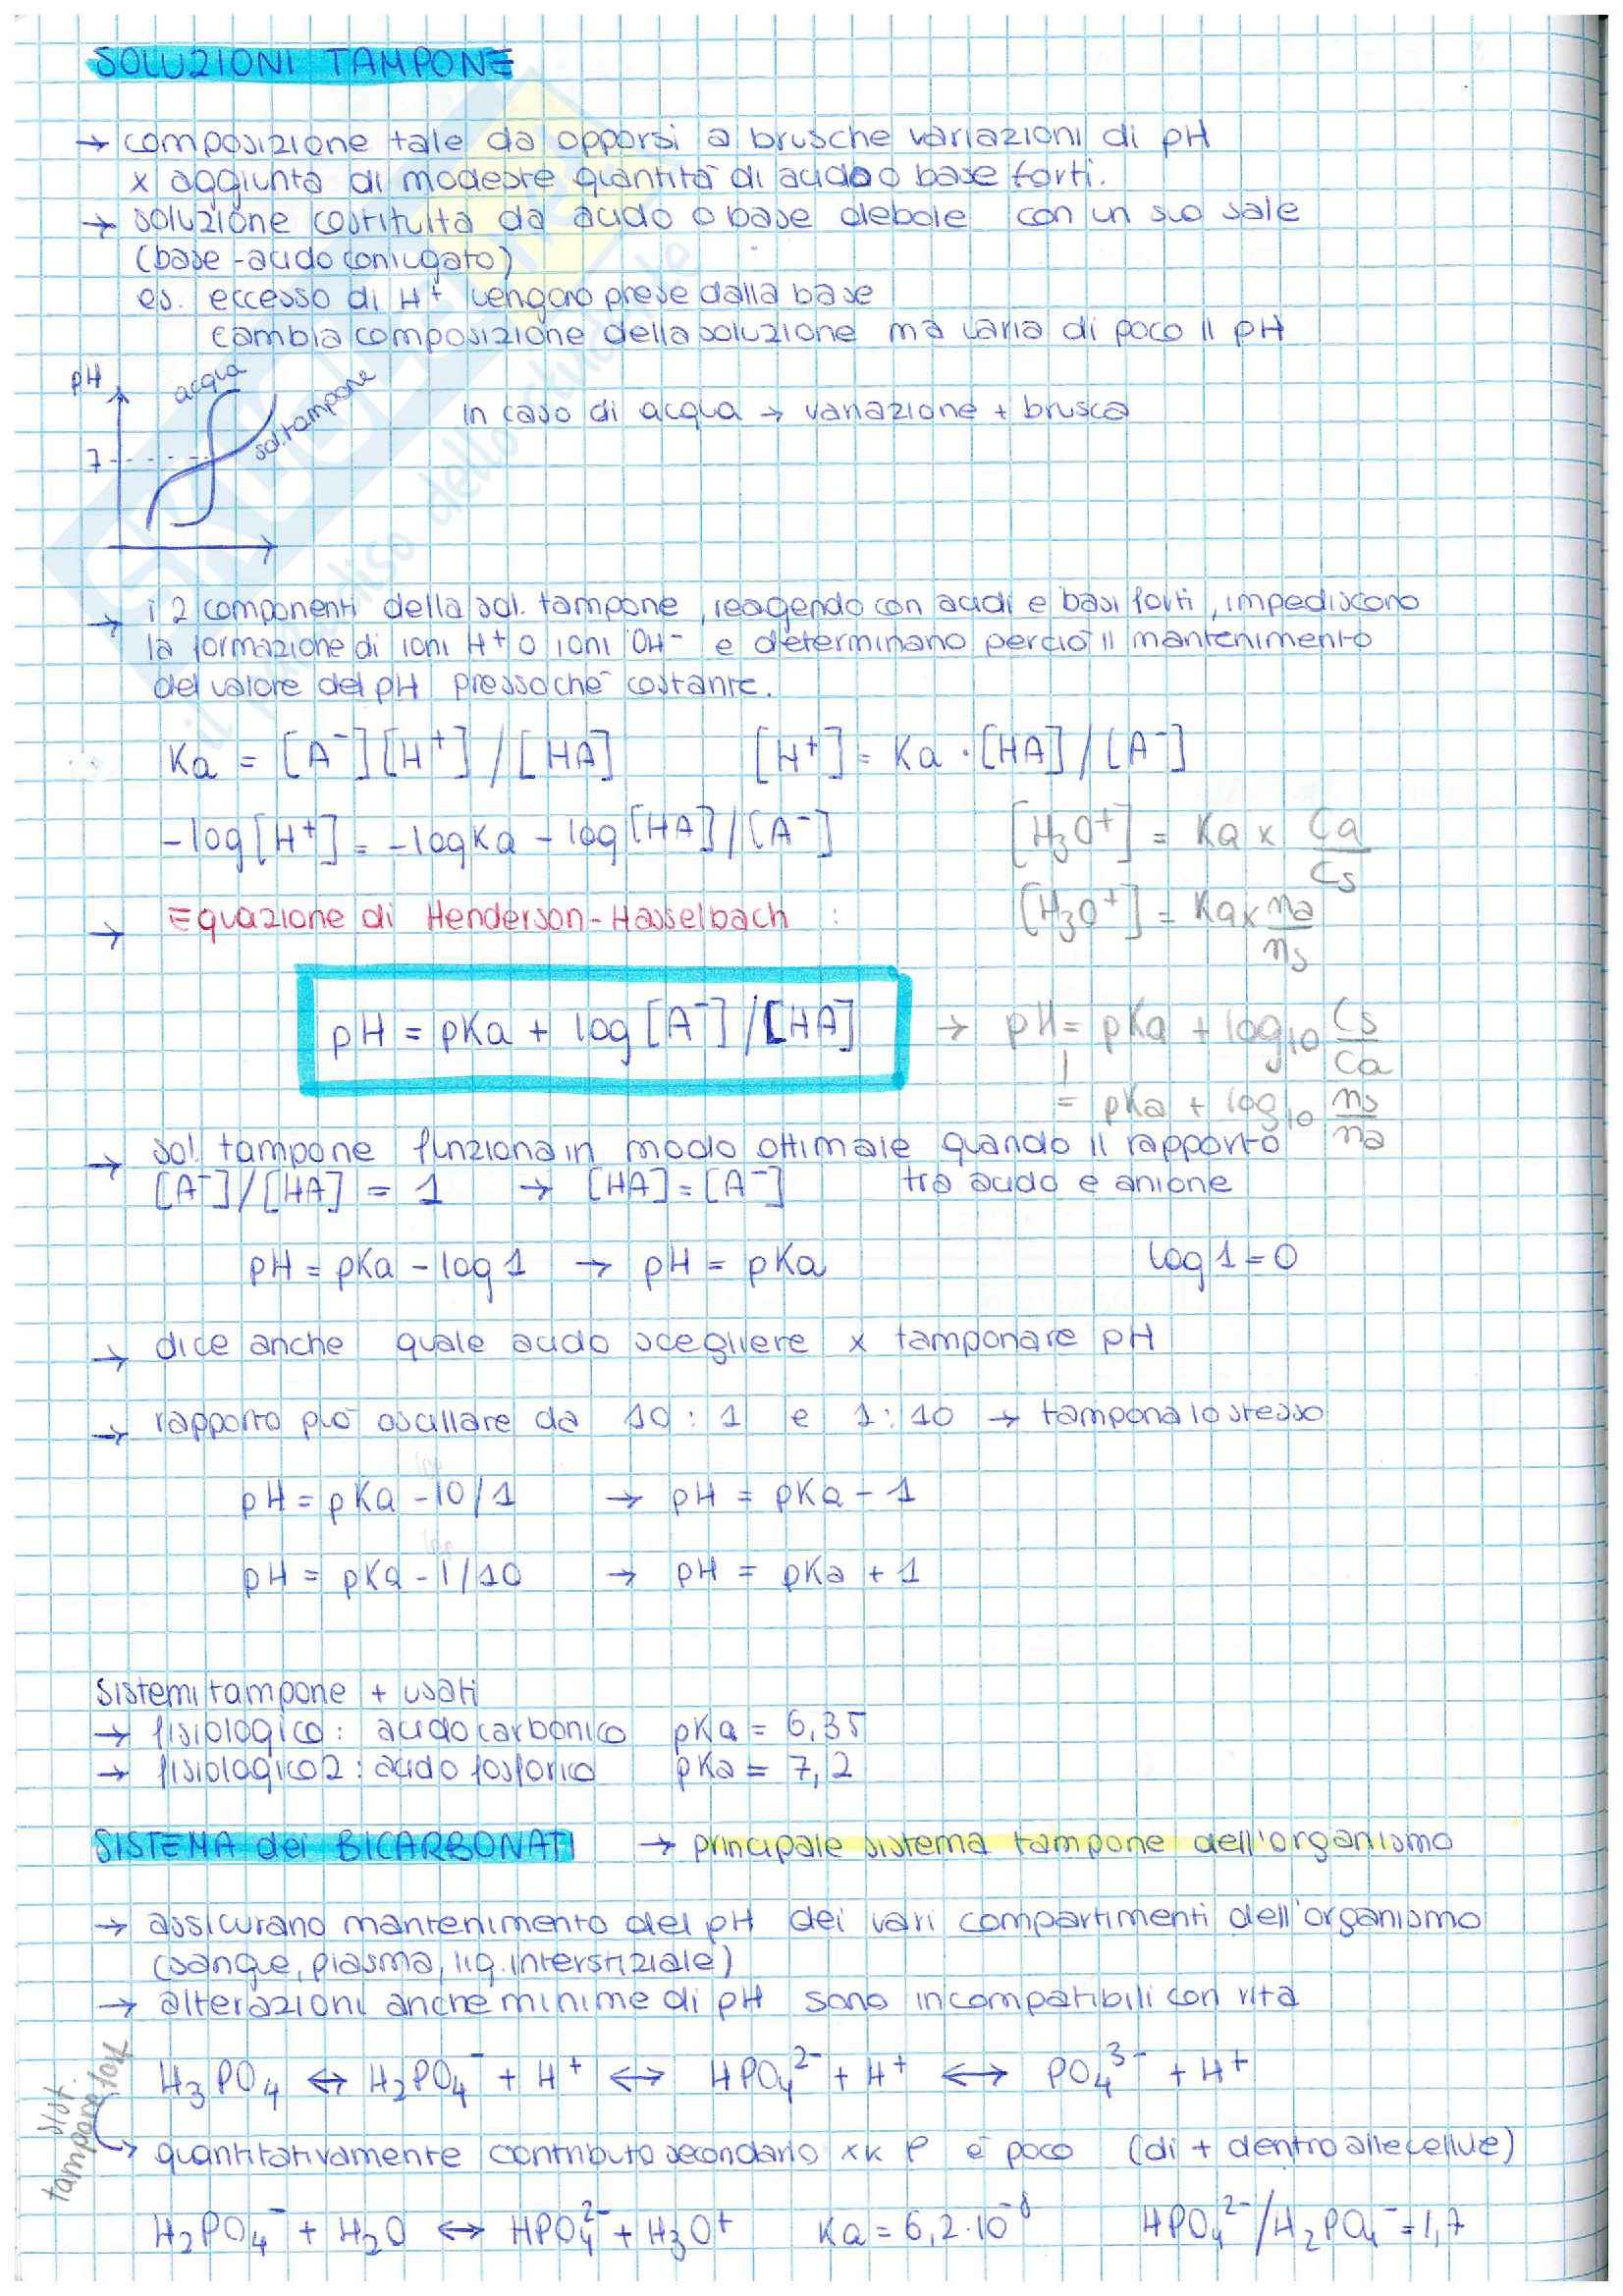 SOLUZIONI TAMPONE
→ composizione tale da opporsi a brusche variazioni di pH
x aggiunta di modeste quantità di acido o base forti.
→ soluzione costituita da acido o base debole con un suo sale
(base-acido coniugato)
es. eccesso di H+ vengono prese dalla base
cambia composizione della soluzione ma varia di poco il pH
pH
acqua
sol. tampone
7
in caso di acqua → variazione + brusca
→ i 2 componenti della sol. tampone, reagendo con acidi e basi forti, impediscono
la formazione di ioni H+ o ioni OH- e determinano perciò il mantenimento
del valore del pH pressoché costante.
Ka = [A⁻][H⁺]/[HA] [H⁺] = Ka · [HA]/[A⁻]
-log[H⁺] = -logKa - log[HA]/[A⁻] [H₃O⁺] = Ka x Ca/Cs
→ Equazione di Henderson-Hasselbach : [H₃O⁺] = Ka x na/ns
pH = pKa + log[A⁻]/[HA] → pH = pKa + log₁₀ Cs/Ca
= pKa + log₁₀ ns/na
→ sol. tampone funziona in modo ottimale quando il rapporto
[A⁻]/[HA] = 1 → [HA] = [A⁻] tra acido e anione
pH = pKa - log1 → pH = pKa log1 = 0
→ dice anche quale acido scegliere x tamponare pH
→ rapporto può oscillare da 10 : 1 e 1 : 10 → tampona lo stesso
log
pH = pKa - 10/1 → pH = pKa - 1
log
pH = pKa - 1/10 → pH = pKa + 1
Sistemi tampone + usati
→ fisiologico: acido carbonico pKa = 6,35
→ fisiologico 2: acido fosforico pKa = 7,2
SISTEMA dei BICARBONATI → principale sistema tampone dell'organismo
→ assicurano mantenimento del pH dei vari compartimenti dell'organismo
(sangue, plasma, liq. interstiziale)
→ alterazioni anche minime di pH sono incompatibili con vita
H₃PO₄ ↔ H₂PO₄⁻ + H⁺ ↔ HPO₄²⁻ + H⁺ ↔ PO₄³⁻ + H⁺
sist.
tampone fosf
→ quantitativamente contributo secondario xk P è poco (di + dentro alle cellule)
H₂PO₄⁻ + H₂O ↔ HPO₄²⁻ + H₃O⁺ Ka = 6,2·10⁻⁸ HPO₄²⁻/H₂PO₄⁻ = 1,7